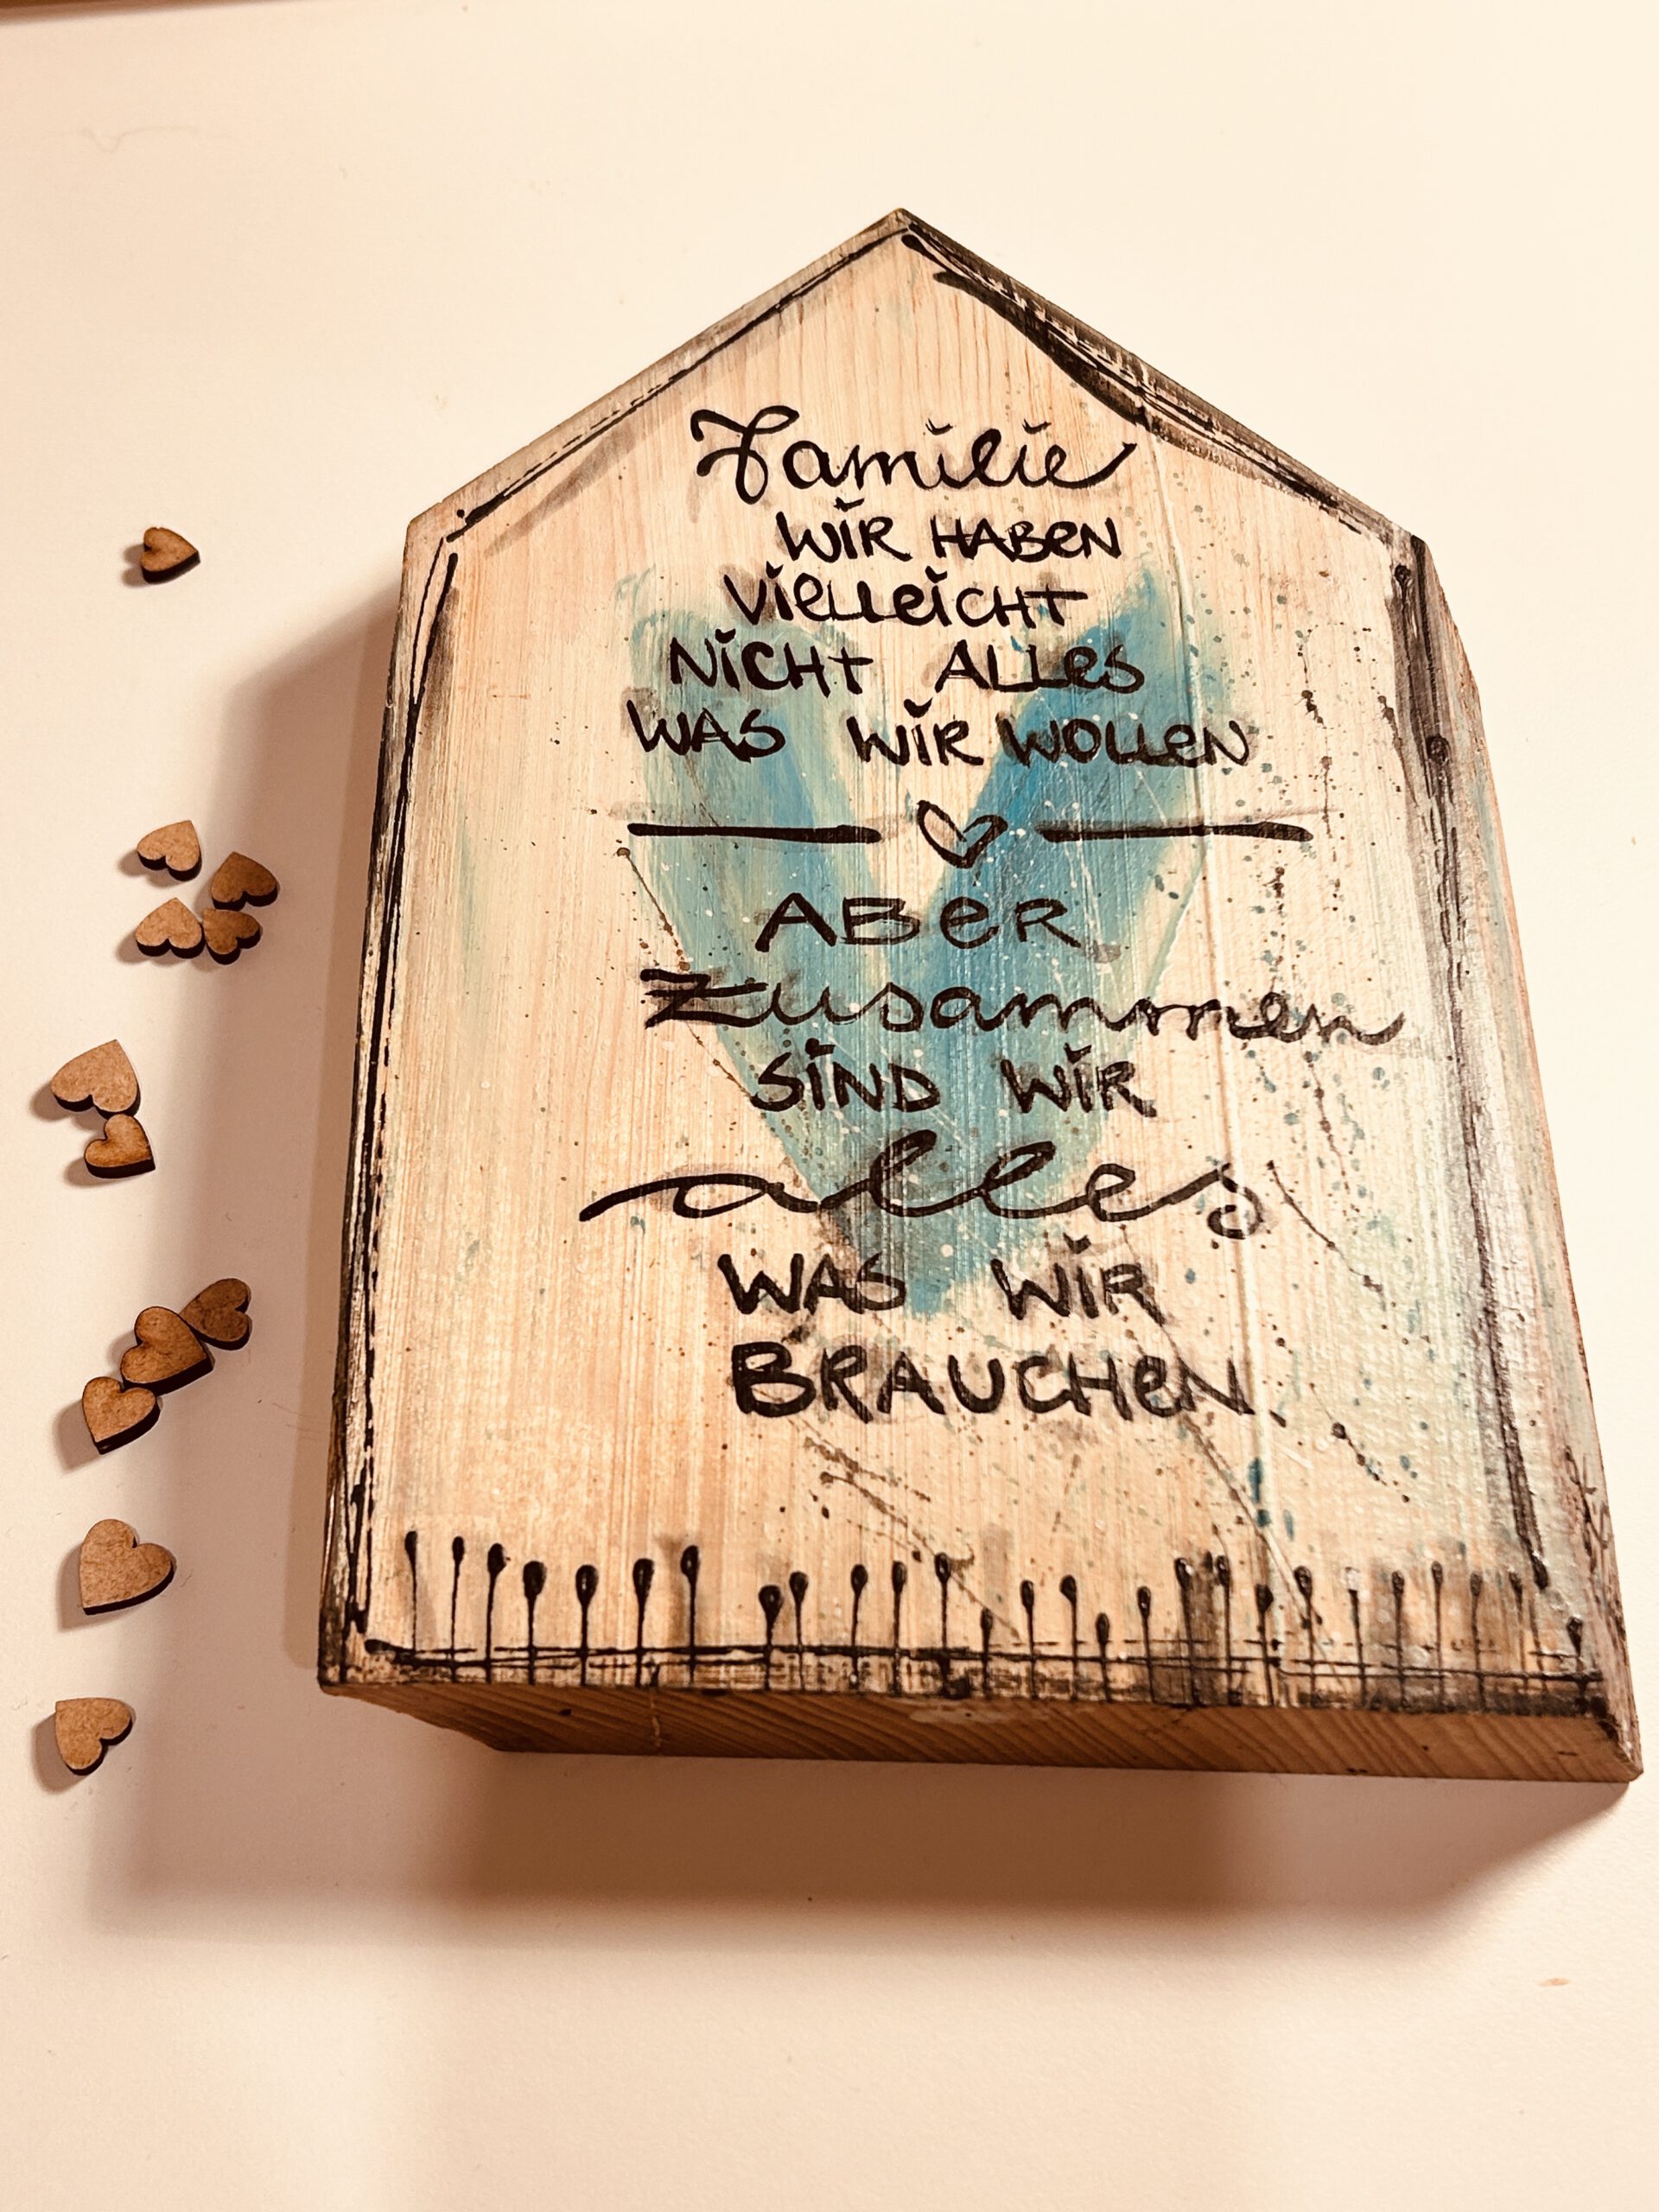 Familie
WIR HABEN
VIELLEICHT
NICHT ALLES
WAS WIR WOLLEN
ABER
Zusammen
SIND WIR
alles
WAS WIR
BRAUCHEN.